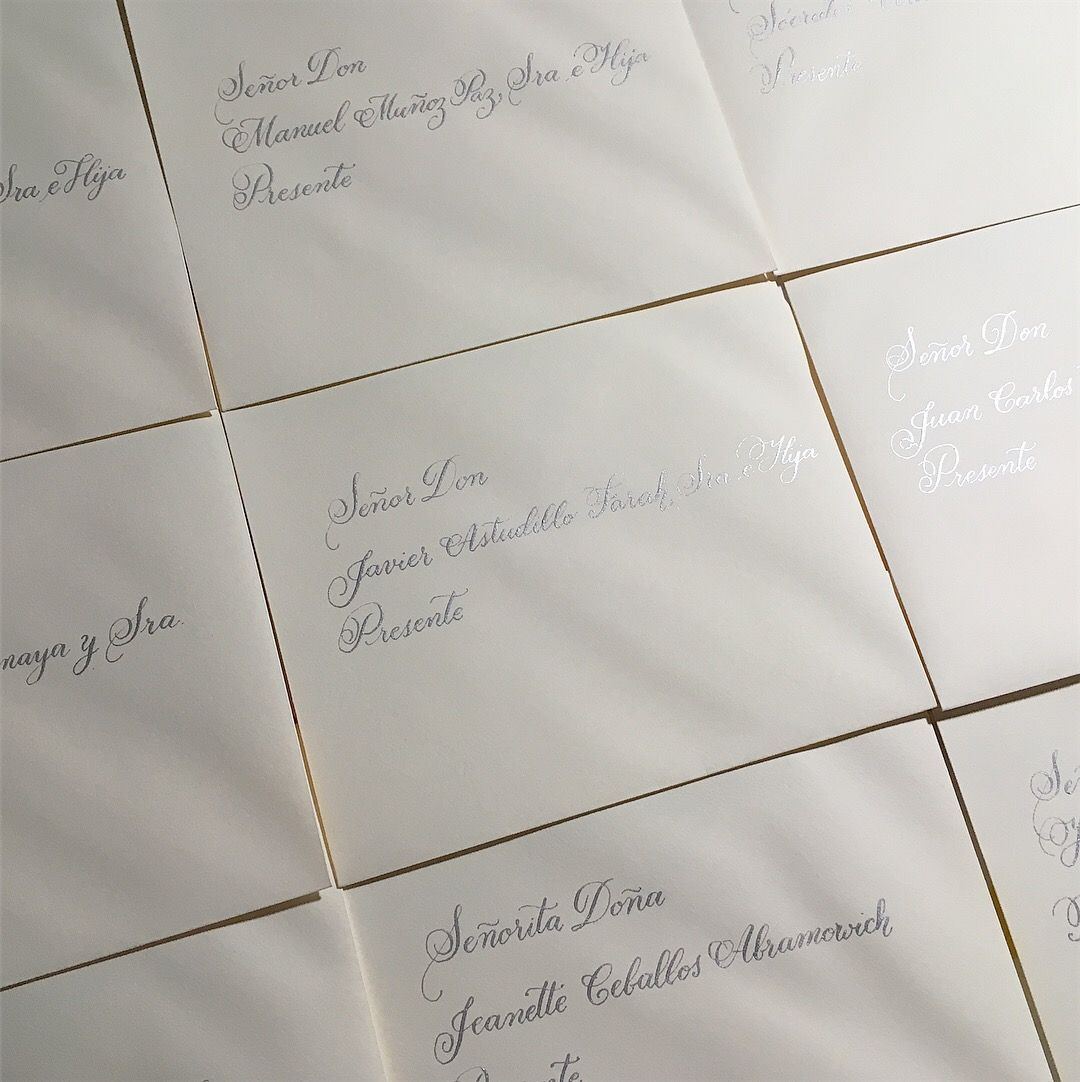 Sra. e Hija
Señor Don
Manuel Muñoz Paz, Sra. e Hija
Presente
Sócrates
Presente
Señor Don
Javier Astudillo Farah, Sra. e Hija
Presente
Señor Don
Juan Carlos
Presente
y Sra.
Señorita Doña
Jeanette Ceballos Abramowich
Presente